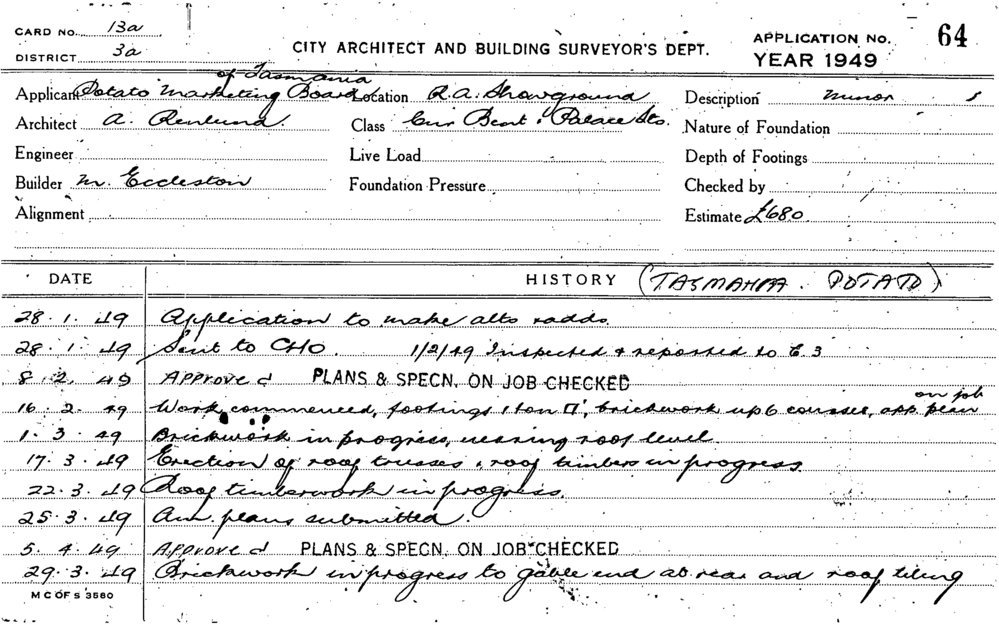 CARD No. 13a
DISTRICT 3a
CITY ARCHITECT AND BUILDING SURVEYOR'S DEPT.
APPLICATION No. 64
YEAR 1949
of Tasmania
Applicant Potato Marketing Board Location R.A. Showground Description Minor
Architect A. Renlund. Class Cnr Bent & Palace Sts. Nature of Foundation
Engineer Live Load Depth of Footings
Builder Mr. Eccleston Foundation Pressure Checked by
Alignment Estimate £680
DATE HISTORY (TASMANIA. POTATO)
28.1.49 Application to make alts & adds.
28.1.49 Sent to CHO. 1/2/49 Inspected & reported to E.3
8.2.49 Approved PLANS & SPECN. ON JOB CHECKED
on job
16.2.49 Work commenced, footings 1 ton, brickwork up 6 courses, app plan
1.3.49 Brickwork in progress, nearing roof level.
17.3.49 Erection of roof trusses & roof timbers in progress.
22.3.49 Roof timberwork in progress.
25.3.49 Am. plans submitted.
5.4.49 Approved PLANS & SPECN. ON JOB CHECKED
29.3.49 Brickwork in progress to gable end at rear and roof tiling
M C OF S 3580